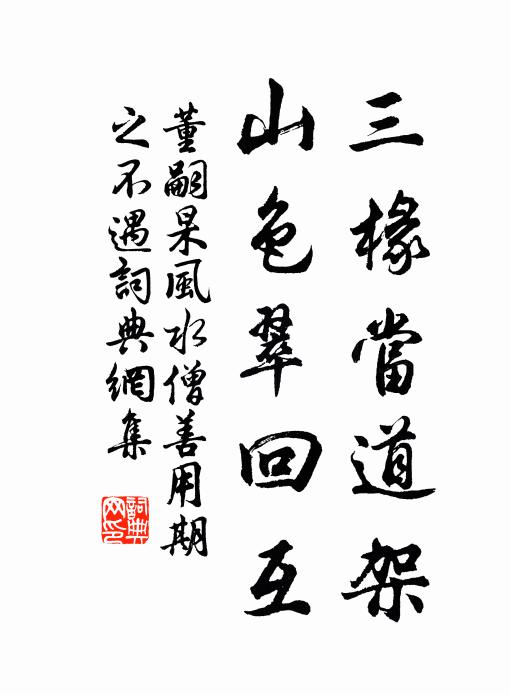 三椽當道架
山色翠回互
董嗣杲風水僧善用期
之不遇詞典網集
詞典
網印